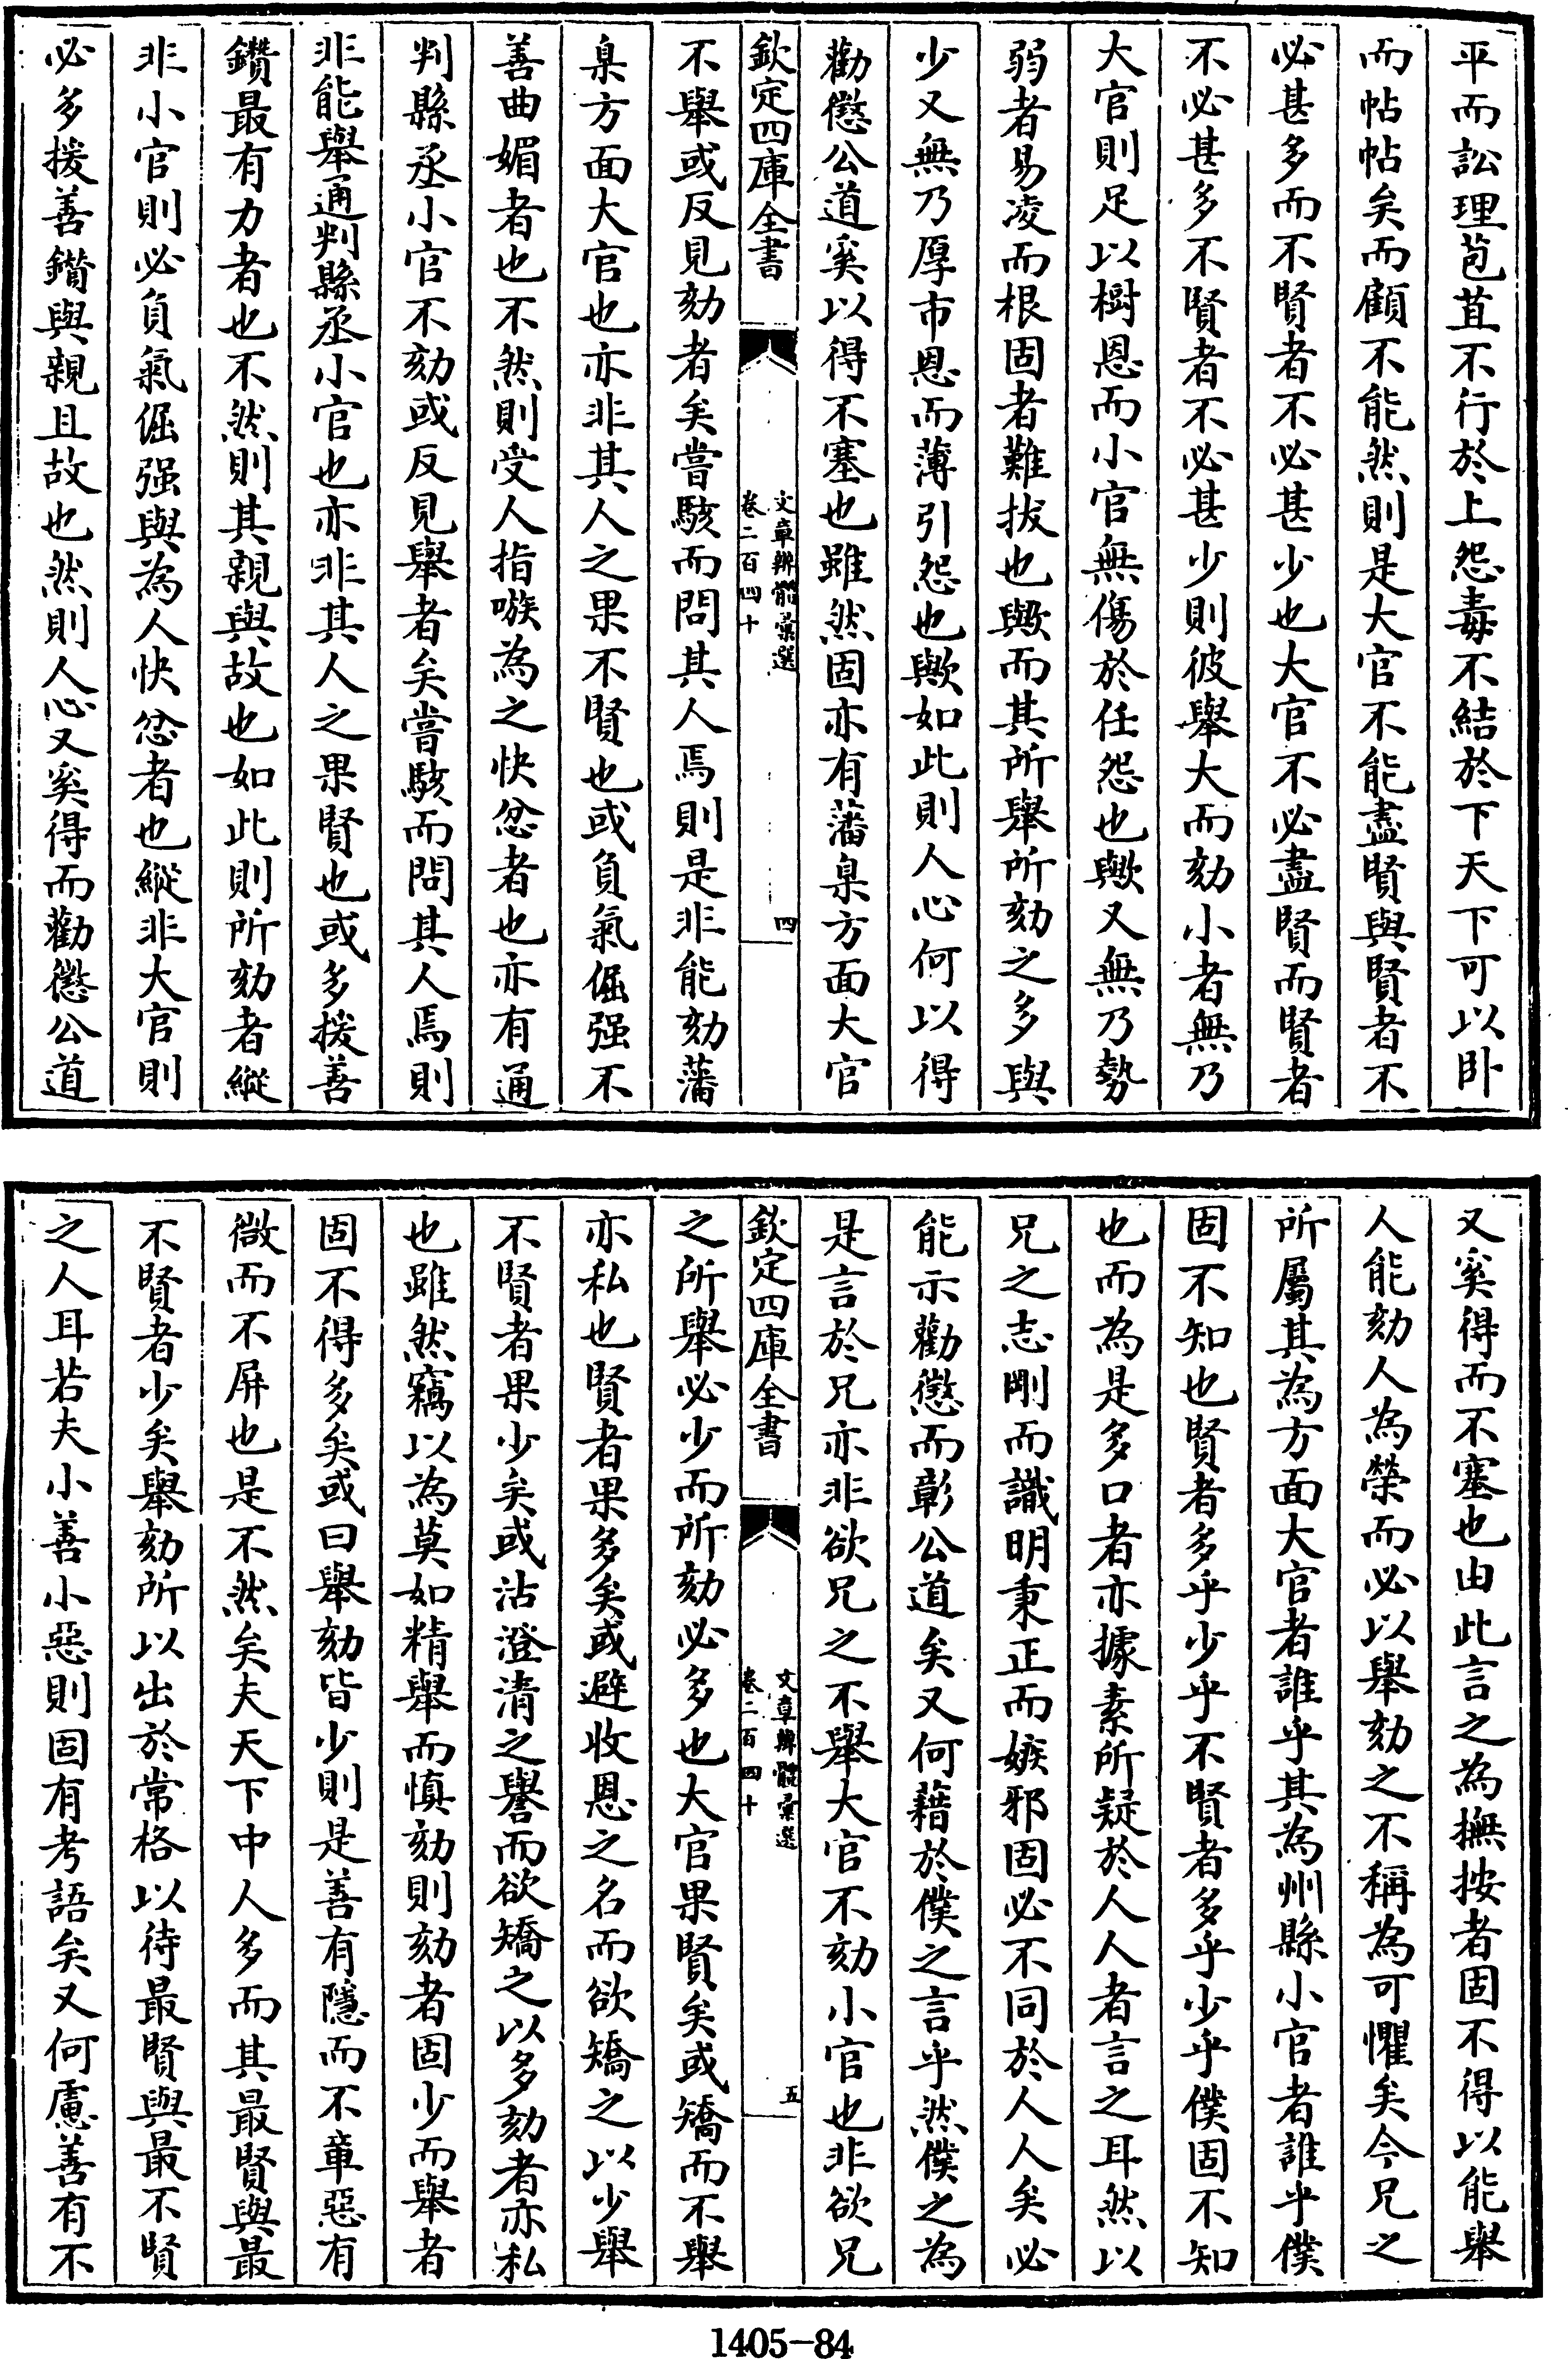 平而訟理苞苴不行於上怨毒不結於下天下可以卧
而帖帖矣而顧不能然則是大官不能盡賢與賢者不
必甚多而不賢者不必甚少也大官不必盡賢而賢者
不必甚多不賢者不必甚少則彼舉大而劾小者無乃
大官則足以樹恩而小官無傷於任怨也歟又無乃勢
弱者易凌而根固者難拔也歟而其所舉所劾之多與
少又無乃厚市恩而薄引怨也歟如此則人心何以得
勸懲公道奚以得不塞也雖然固亦有藩臬方面大官
欽定四庫全書
文章辨體彙選
卷二百四十
四
不舉或反見劾者矣嘗駭而問其人焉則是非能劾藩
臬方面大官也亦非其人之果不賢也或負氣倔强不
善曲媚者也不然則受人指嗾為之快忿者也亦有通
判縣丞小官不劾或反見舉者矣嘗駭而問其人焉則
非能舉通判縣丞小官也亦非其人之果賢也或多援善
鑽最有力者也不然則其親與故也如此則所劾者縱
非小官則必負氣倔强與為人快忿者也縱非大官則
必多援善鑽與親且故也然則人心又奚得而勸懲公道
又奚得而不塞也由此言之為撫按者固不得以能舉
人能劾人為榮而必以舉劾之不稱為可懼矣今兄之
所屬其為方面大官者誰乎其為州縣小官者誰乎僕
固不知也賢者多乎少乎不賢者多乎少乎僕固不知
也而為是多口者亦據素所疑於人人者言之耳然以
兄之志剛而識明秉正而嫉邪固必不同於人人矣必
能示勸懲而彰公道矣又何藉於僕之言乎然僕之為
是言於兄亦非欲兄之不舉大官不劾小官也非欲兄
欽定四庫全書
文章辨體彙選
卷二百四十
五
之所舉必少而所劾必多也大官果賢矣或矯而不舉
亦私也賢者果多矣或避收恩之名而欲矯之以少舉
不賢者果少矣或沽澄清之譽而欲矯之以多劾者亦私
也雖然竊以為莫如精舉而慎劾則劾者固少而舉者
固不得多矣或曰舉劾皆少則是善有隱而不章惡有
微而不屏也是不然矣夫天下中人多而其最賢與最
不賢者少矣舉劾所以出於常格以待最賢與最不賢
之人耳若夫小善小惡則固有考語矣又何慮善有不
1405-84